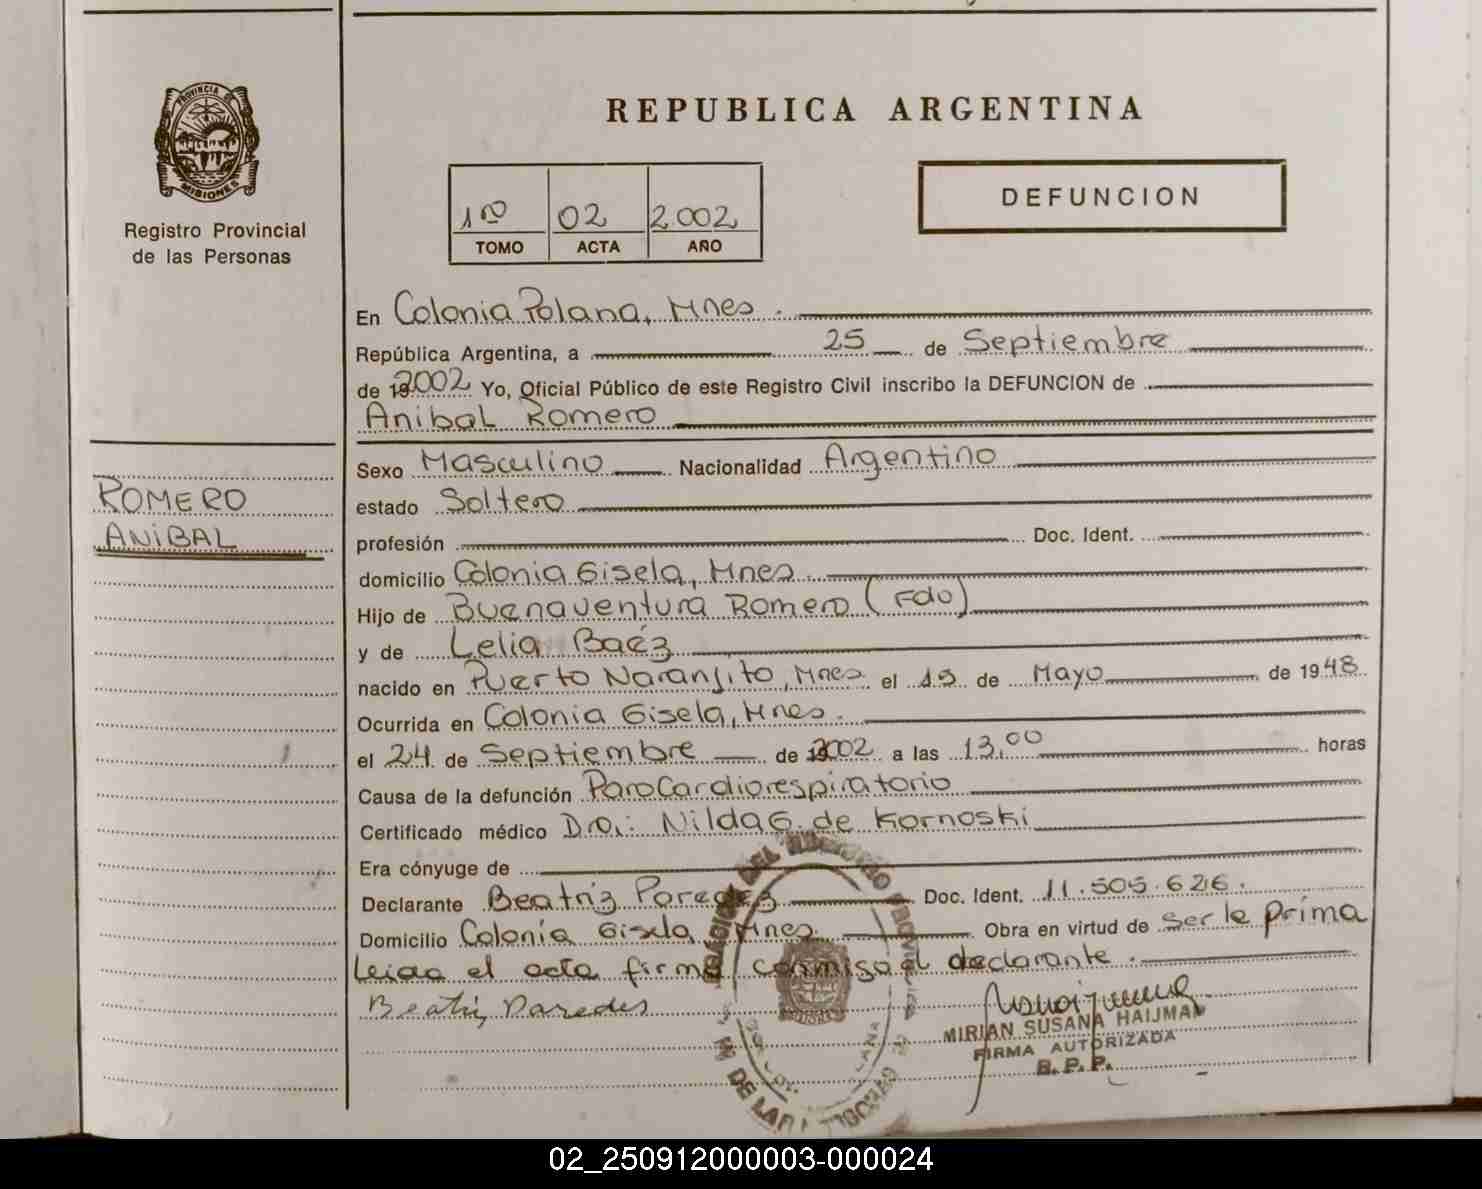 PROVINCIA DE
MISIONES
Registro Provincial
de las Personas
ROMERO
ANIBAL
REPUBLICA ARGENTINA
1ro 02 2.002
TOMO ACTA AÑO
DEFUNCION
En Colonia Polana, Mnes.
República Argentina, a 25 de Septiembre
de 2002 Yo, Oficial Público de este Registro Civil inscribo la DEFUNCION de
Anibal Romero
Sexo Masculino Nacionalidad Argentino
estado Soltero
profesión Doc. Ident.
domicilio Colonia Gisela, Mnes.
Hijo de Buenaventura Romero (Fdo)
y de Lelia Baéz
nacido en Puerto Naranjito, Mnes el 15 de Mayo de 1948
Ocurrida en Colonia Gisela, Mnes.
el 24 de Septiembre de 2002 a las 13,00 horas
Causa de la defunción ParoCardiorespiratorio
Certificado médico Dra: Nilda G. de Kornoski
Era cónyuge de
Declarante Beatriz Paredez Doc. Ident. 11.505.626.
Domicilio Colonia Gisela, Mnes. Obra en virtud de ser la prima
Leida el acta firma conmigo el declarante.
Beatriz Paredes
MIRIAN SUSANA HAIJMAN
FIRMA AUTORIZADA
B. P. P.
02_250912000003-000024